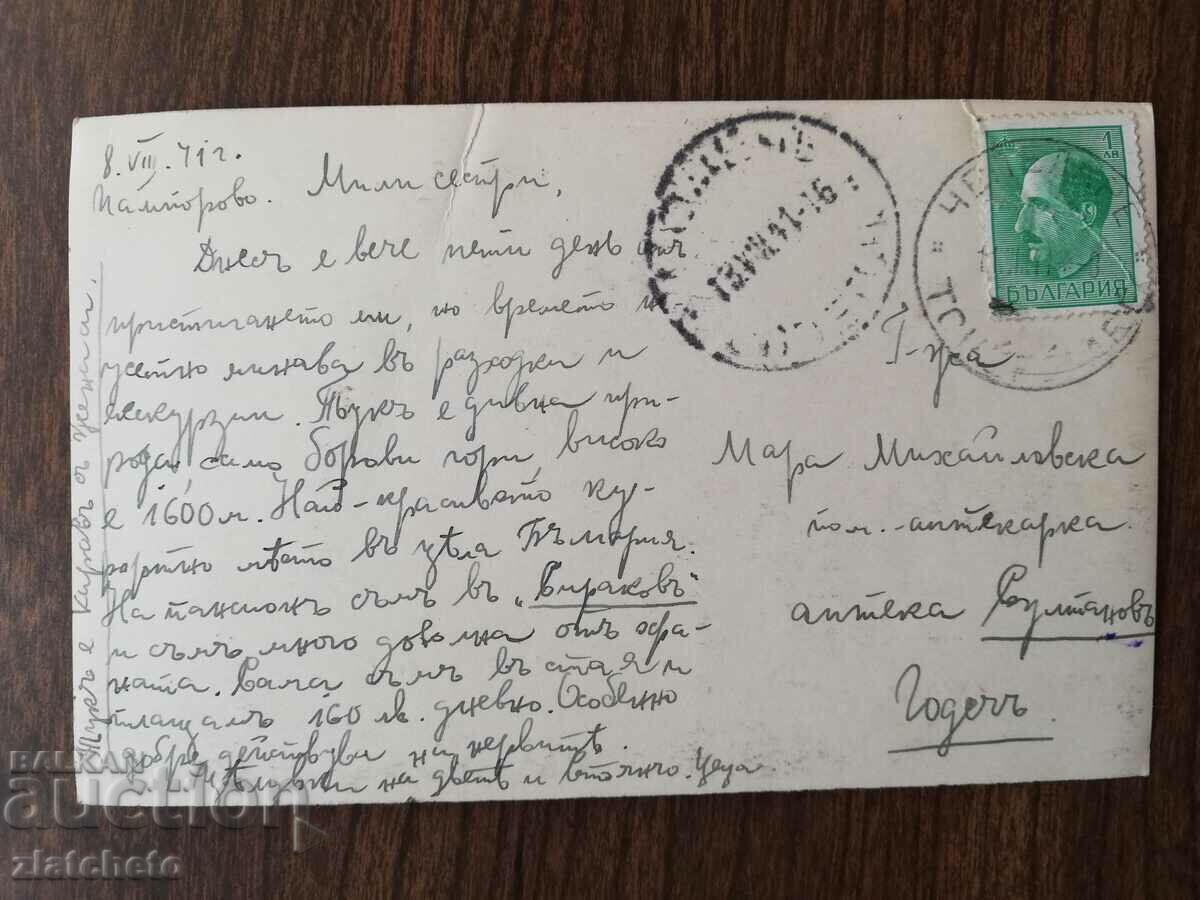 8. VIII. 41 г.
Пампорово. Мили сестри,
Днесъ е вече пети день отъ
пристигането ми, но времето не-
усетно минава въ разходки и
екскурзии. Тукъ е дивна при-
рода, само борови гори, високо
е 1600 м. Най-красивото ку-
рортно мѣсто въ цѣла България.
На пансионъ съмъ въ „Бираковъ“
и съмъ много доволна отъ хра-
ната. Сама съмъ въ стая и
плащамъ 160 лв. дневно. Особено
добре действува на нервитѣ.
Цѣлувки на дветѣ и Цеца.
Тукъ е Кировъ съ жена си.
Г-жа
Мара Михайловска
пом.-аптекарка
аптека Султановъ
Годечъ
1 ЛВ.
БЪЛГАРИЯ
13.VIII.41-16
BALKAN
auction
zlatcheto